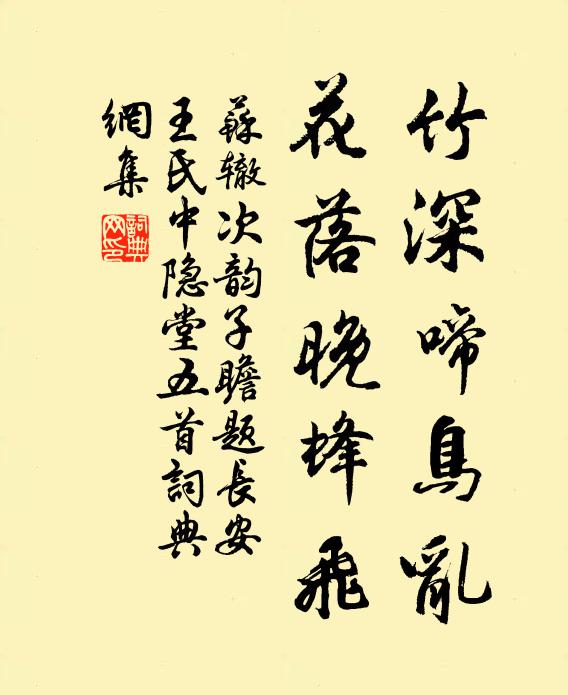 竹深啼鳥亂
花落晚蜂飛
蘇辙次韵子瞻题長安
王氏中隐堂五首詞典
網集
詞典
网印